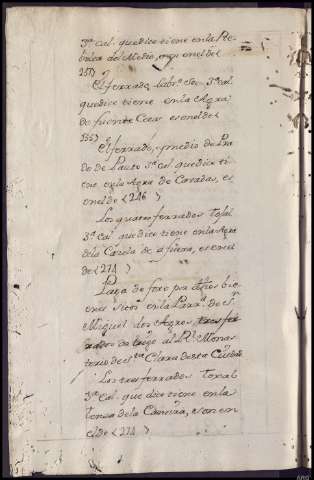 3ª cal. que dice tiene en la Re
del Medio, es en el del
257)
El ferrado labrº sec. 3ª cal.
que dice tiene en la Agra
de fuente Cear es en el del
355)
El ferrado, y medio de Pra
do de Pasto 3ª cal. que dize ti
ene en la Agra de Covadas, es
en el de (246)
Los quatro ferrados Tojal
3ª cal. que dice tiene en la Agra
de la Carela de afuera, es en el
de (274)
Paga de foro por dhos bie
nes sitos en la Parrª de Sn
Miguel dos Agros, tres fer
rados de trigo al Rl Monas
terio de Sta Clara desta Ciudad
Los tres ferrados Toxal
3ª cal. que dice tiene en la
de la es en en
el de (274)